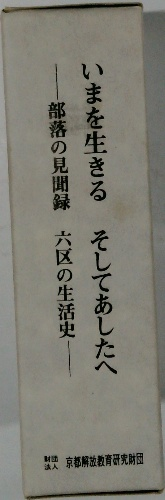 いまを生きる　そしてあしたへ
――部落の見聞録　六区の生活史――
財団法人　京都解放教育研究財団